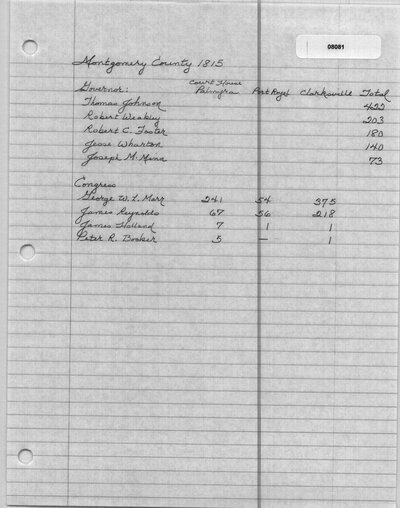 08081
Montgomery County 1815
Court House
Governor: Palmyra Port Royal Clarksville Total
Thomas Johnson 422
Robert Weakley 203
Robert C. Foster 180
Jesse Wharton 140
Joseph McMinn 73
Congress
George W. L. Marr 241 54 375
James Reynolds 67 56 218
James Holland 7 1 1
Peter R. Booker 5 — 1